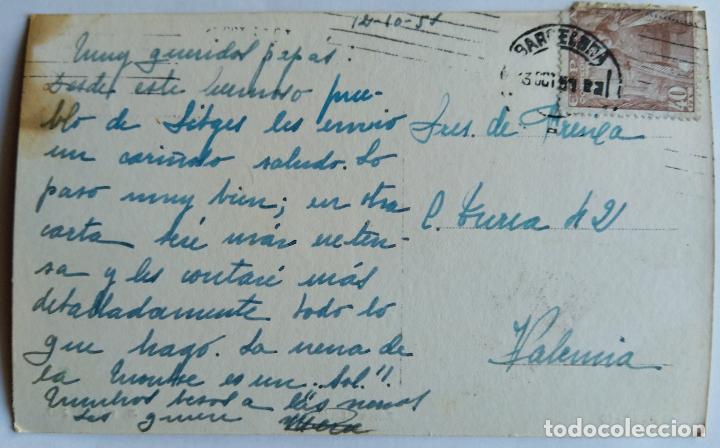 12-10-51
Muy queridos papás:
Desde este hermoso pue-
blo de Sitges les envio
un cariñoso saludo. Lo
paso muy bien; en otra
carta seré más exten-
sa y les contaré más
detalladamente todo lo
que hago. La nena de
la Montse es un "Sol"!
Muchos besos a las nenas
Les quiere
Sres. de
C. Turia 42
Valencia
BARCELONA
13 OCT 51
40
todocoleccion.net